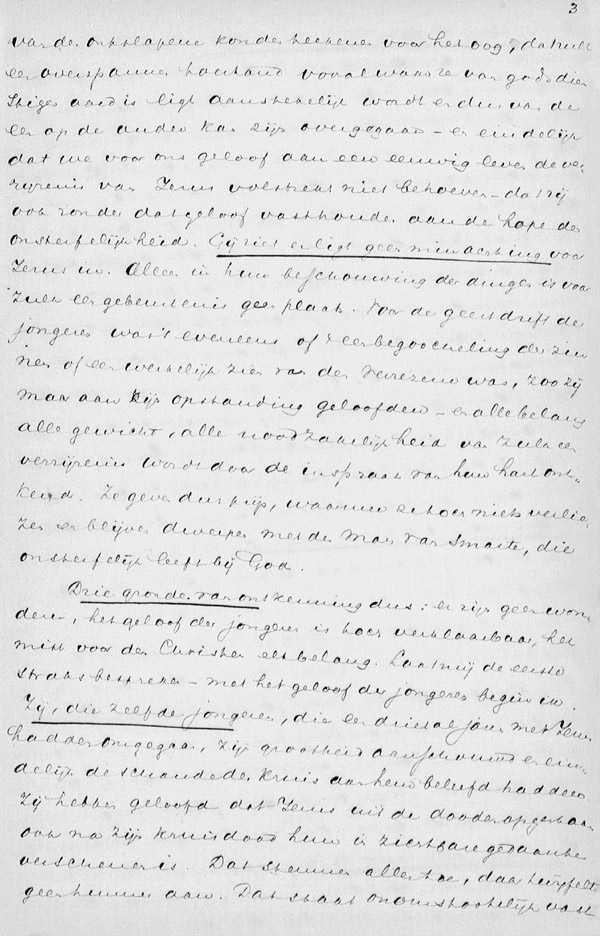 3
van den ontslapene konden teekenen voor het oog, dat zulk
een overspannen toestand vooral waar ze van godsdien
stigen aard is ligt aanstekelijk wordt en dus van de
een op de ander kan zijn overgegaan – en eindelijk
dat we voor ons geloof aan een eeuwig leven de ver
rijzenis van Jezus volstrekt niet behoeven – dat zij
ook zonder dat geloof vasthouden aan de hope der
onsterfelijkheid. Gij ziet er ligt geen minachting voor
Jezus in. Alleen in hun beschouwing der dingen is voor
zulk een gebeurtenis geen plaats. Voor de geestdrift der
jongeren was 't eveneens of een begoocheling der zin
nen of een werkelijk zien van den Verrezene was, zoo zij
maar aan zijn opstanding geloofden – en alle belang
alle gewicht, alle noodzakelijkheid van zulk een
verrijzenis wordt door de inspraak van hun hart ont-
kend. Ze geven dus prijs, waarmee ze toch niets verlie
zen en blijven dweepen met den Man van Smarte, die
onsterfelijk leeft bij God.
Drie gronden van ontkenning dus: er zijn geen won
deren, het geloof der jongeren is toch verklaarbaar, het
mist voor den Christen elk belang. Laat mij de eerste
straks bespreken – met het geloof der jongeren begin ik.
Zij, die zelfde jongeren, die een drietal jaren met Jezus
hadden omgegaan, zijn grootheid aanschouwd en ein-
delijk de schande des kruis aan hem beleefd hadden.
Zij hebben geloofd dat Jezus uit de dooden opgestaan
ook na zijn kruisdood hun in zichtbare gedaante
verschenen is. Dat stemmen allen toe, daar twijfelt
geen hunner aan. Dat staat onomstootelijk vast